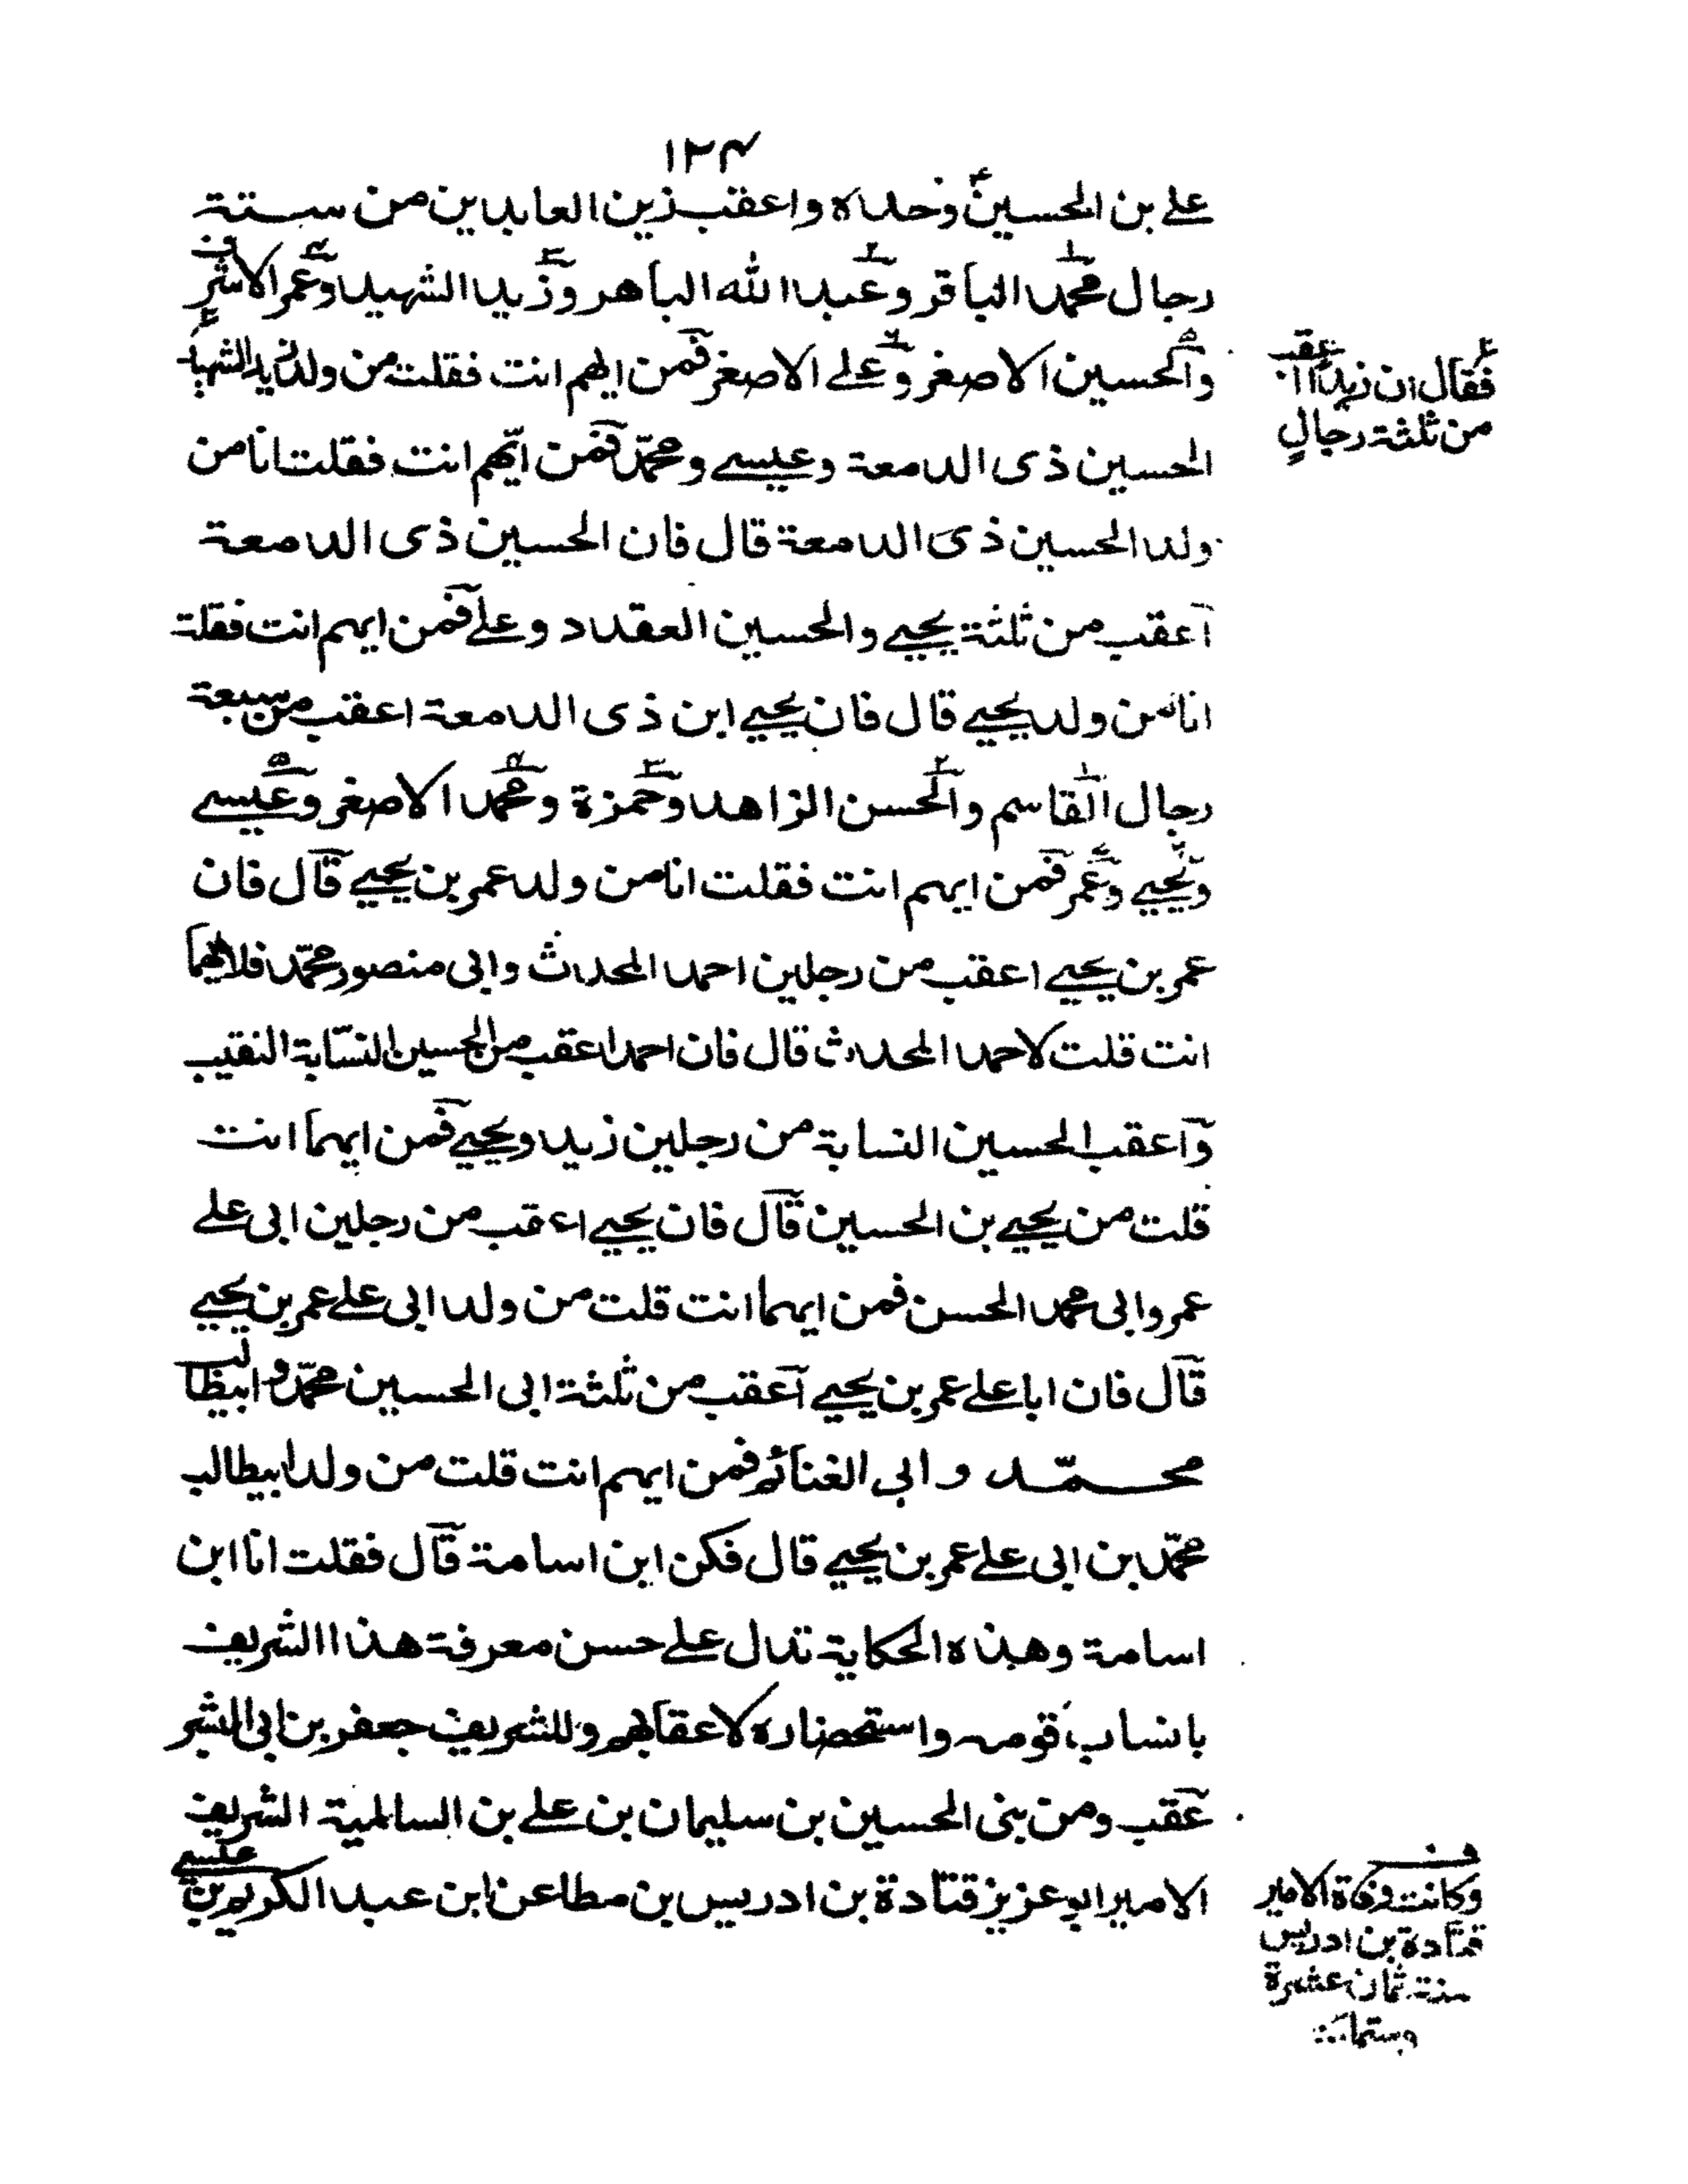 ١٢٤
علے بن الحسينؑ وحده واعقب زين العابدين من ستة
رجال محمد الباقر وعبد الله الباهر وزيد الشهيد وعمر الاشرف
والحسين الاصغر وعلے الاصغر فمن ايهم انت فقلت من ولد زيد الشهيد
فقال ان زيدا اعقب
من ثلثة رجال
الحسين ذى الدمعة وعيسے ومحمّد فمن ايّهم انت فقلت انا من
ولد الحسين ذى الدمعة قال فان الحسين ذى الدمعة
اعقب من ثلثة يحيے والحسين العقدد وعلے فمن ايهم انت فقلت
انا من ولد يحيے قال فان يحيے ابن ذى الدمعة اعقب من سبعة
رجال القاسم والحسن الزاهد وحمزة ومحمد الاصغر وعيسے
ويحيے وعمر فمن ايهم انت فقلت انا من ولد عمر بن يحيے قال فان
عمر بن يحيے اعقب من رجلين احمد المحدث وابى منصور محمّد فلايهما
انت قلت لاحمد المحدث قال فان احمد اعقب من الحسين النسّابة النقيب
واعقب الحسين النسابة من رجلين زيد ويحيے فمن ايهما انت
قلت من يحيے بن الحسين قال فان يحيے اعقب من رجلين ابى علے
عمر وابى محمد الحسن فمن ايهما انت قلت من ولد ابى علے عمر بن يحيے
قال فان ابا علے عمر بن يحيے اعقب من ثلثة ابى الحسين محمّد وابيطالب
محمّد وابى الغنائم فمن ايهم انت قلت من ولد ابيطالب
محمّد بن ابى علے عمر بن يحيے قال فكن ابن اسامة قال فقلت انا ابن
اسامة وهذه الحكاية تدل علے حسن معرفة هذا الشريف
بانساب قومه واستحضاره لاعقابهم وللشريف جعفر بن ابى البشر
عقب ومن بنى الحسين بن سليمان بن علے بن السالمية الشريف
الامير ابو عزيز قتادة بن ادريس بن مطاعن ابن عبد الكريم بن عيسے
وكانت وفاة الامير
قتادة بن ادريس
سنة ثمان عشرة
وستمائة